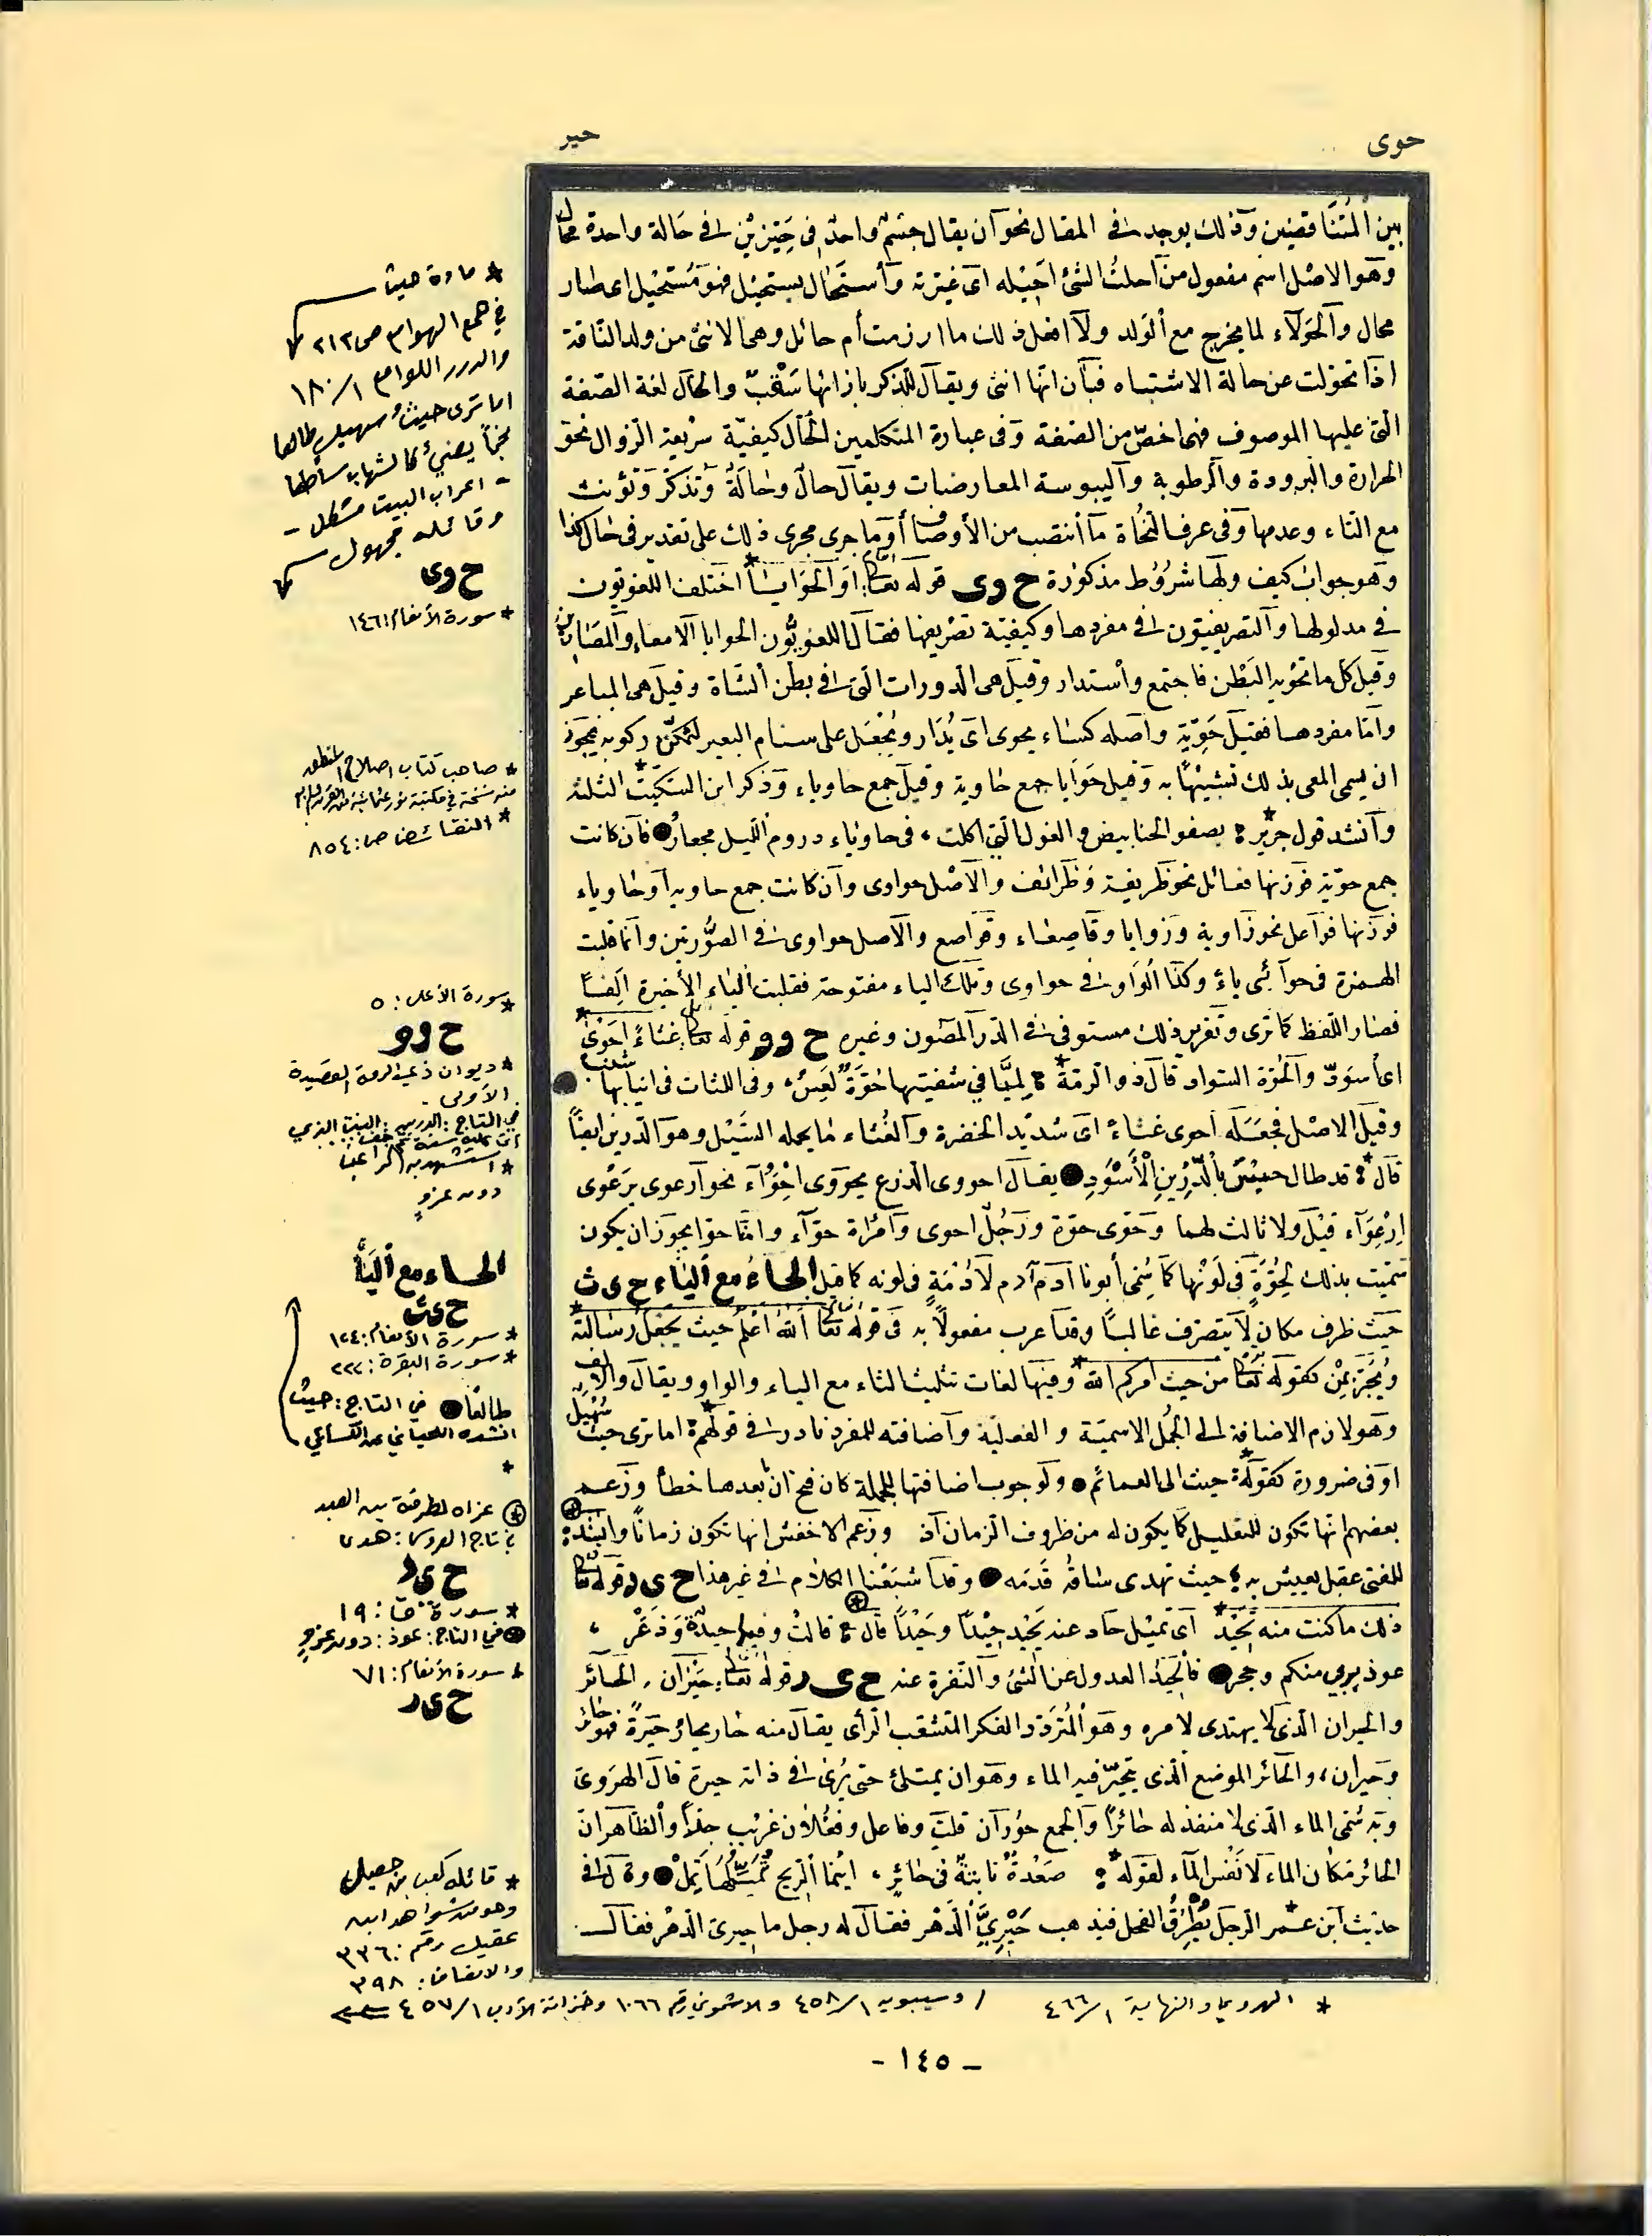 حوى
حير
بين المتناقضين وذلك يوجد في المقال نحو أن يقال جسم واحد في حيزين في حالة واحدة محال
وهو الاصل اسم مفعول من احلت الشئ احيله اى غيرته واستحال يستحيل فهو مستحيل اى صار
محال والحولاء لما يخرج مع الولد ولا افعل ذلك ما ارزمت أم حائل وهى الانثى من ولد الناقة
اذا تحولت عن حالة الاشتباه فبان انها انثى ويقال للذكر بازائها سقب والحال لغة الصفة
التى عليها الموصوف فهى اخص من الصفة وفى عبارة المتكلمين الحال كيفية سريعة الزوال نحو
الحرارة والبرودة والرطوبة واليبوسة العارضات ويقال حال وحالة وتذكر وتؤنث
مع التاء وعدمها وفى عرف النحاة ما انتصب من الأوصاف أو ما جرى مجرى ذلك على تقدير فى حال كذا
وهو جواب كيف ولها شروط مذكورة ح وى قوله تعالى او الحوايا* اختلف اللغويون
فى مدلولها والتصريفيون فى مفردها وكيفية تصريفها فقال اللغويون الحوايا الامعاء والمصارين
وقيل كل ما تحويه البطن فاجتمع واستدار وقيل هى الدورات التى فى بطن الشاة وقيل هى المباعر
واما مفردها فقيل حوية واصله كساء يحوى اى يدار ويجعل على سنام البعير لتمكن ركوبه فيجوز
ان يسمى المعى بذلك تشبيهًا به وقيل حوايا جمع حاوية وقيل جمع حاوياء وذكر ابن السكيت* الثلثة
وانشد قول جرير* يصفو الخنانيص والغول التى اكلت، فى حاوياء دروم الليل مجعار فان كانت
جمع حوية فوزنها فعائل نحو ظريفة وظرائف والاصل حوائى وان كانت جمع حاوية او حاوياء
فوزنها فواعل نحو زاوية وزوايا وقاصعاء وقواصع والاصل حواوى فى الصورتين وانما قلبت
الهمزة فى حوائى ياءً وكذا الواو فى حواوى وتلك الياء مفتوحة فقلبت الياء الأخيرة الفًا
فصار اللفظ كما ترى وتقرير ذلك مستوفى فى الدر المصون وغيره ح وو قوله تعالى غثاءً احوى*
اى أسود والحوة السواد قال ذو الرمة* لمياء فى شفتيها حوة لعس، وفى اللثات وفى انيابها شنب
وقيل الاصل فجعله احوى غثاءً اى شديد الخضرة والغثاء ما يحمله السيل وهو الدرين ايضًا
قال* قد طال حبس بالدرين الأسود يقال احووى الزرع يحووى احوواء نحو ارعوى يرعوى
ارعواء قيل ولا ثالث لهما وحوى حوة ورجل احوى وامراة حواء واما حوا يجوز ان يكون
سميت بذلك لحوة فى لونها كما سمى أبونا آدم آدم لادمة فى لونه كما قيل الحاء مع الياء ح ى ث
حيث ظرف مكان لا يتصرف غالبًا وقد اعرب مفعولاً به فى قوله تعالى الله اعلم حيث يجعل رسالته*
ويجر بمن كقوله تعالى من حيث امركم الله* وفيها لغات تثليث الثاء مع الياء والواو ويقال والالف
وهو لازم الاضافة الى الجمل الاسمية والفعلية واضافته للمفرد نادر فى قولهم* اما ترى حيث سهيل
او فى ضرورة كقوله* حيث الى العمائم ولوجوب اضافتها للجملة كان فتح ان بعدها خطأ وزعم
بعضهم انها تكون للتعليل كما يكون له من ظروف الزمان اذ وزعم الاخفش انها تكون زمانًا وانشد
للفتى عقل يعيش به* حيث تهدى ساقه قدمه وقد اشبعنا الكلام فى غير هذا ح ى د قوله تعالى
ذلك ما كنت منه تحيد* اى تميل حاد عنه يحيد حيدًا وحيدًا قال* قالت وفيها حيدة وذعر،
عوذ بربى منكم وحجر فالحيد العدول عن الشئ والنفرة عنه ح ى ر قوله تعالى حيران، الحائر
والحيران الذى لا يهتدى لامره وهو المتردد الفكر المتشعب الرأى يقال منه حار يحار حيرة فهو حائر
وحيران، والحائر الموضع الذى يتحير فيه الماء وهو ان يمتلئ حتى يرى فى ذاته حيرة قال الهروى
وبه سمى الماء الذى لا منفذ له حائرًا والجمع حوران قلت وفاعل وفعلان غريب جدًا والظاهر ان
الحائر مكان الماء لا نفس الماء لقوله* صعدة نابتة فى حائر، اينما الريح تميلها تمل وقال فى
حديث ابن عمر* الرجل يطرق الفحل فيذهب حيرى الدهر فقال له رجل ما حيرى الدهر فقال
* مادة حيث
في همع الهوامع ص ٢١٢
والدرر اللوامع ١/١٨٠
اما ترى حيث سهيل طالعا
نجماً يضيئ كالشهاب ساطعا
- اعراب البيت مشكل -
وقائله مجهول
ح وى
* سورة الأنعام: ١٤٦
* صاحب كتاب اصلاح المنطق
منه نسخة في مكتبة نور عثمانية
* النقائض ص: ٨٥٤
* سورة الأعلى: ٥
ح وو
* ديوان ذي الرمة القصيدة
الأولى.
في التاج: الدرين: النبت الذي
أتى عليه سنة ثم جف
* استشهد به الراغب
دون عزوٍ
الحاء مع الياء
ح ى ث
* سورة الأنعام: ١٢٤
* سورة البقرة: ٢٢٢
طالعًا في التاج: حيث
انشده اللحياني عن الكسائي
*
عزاه لطرفة بن العبد
في تاج العروس: هدى
ح ى د
* سورة ق: ١٩
في التاج: عوذ: دون عزوٍ
* سورة الأنعام: ٧١
ح ى ر
* قائله كعب بن جعيل
وهو من شواهد ابن
عقيل رقم: ٣٣٦
والانصاف: ٣٩٨
/ وسيبويه ١/٤٥٨ والاشموني رقم ١٠٦٦ وخزانة الأدب ١/٤٥٧
* الهروي والنهاية ١/٤٦٦
- ١٤٥ -